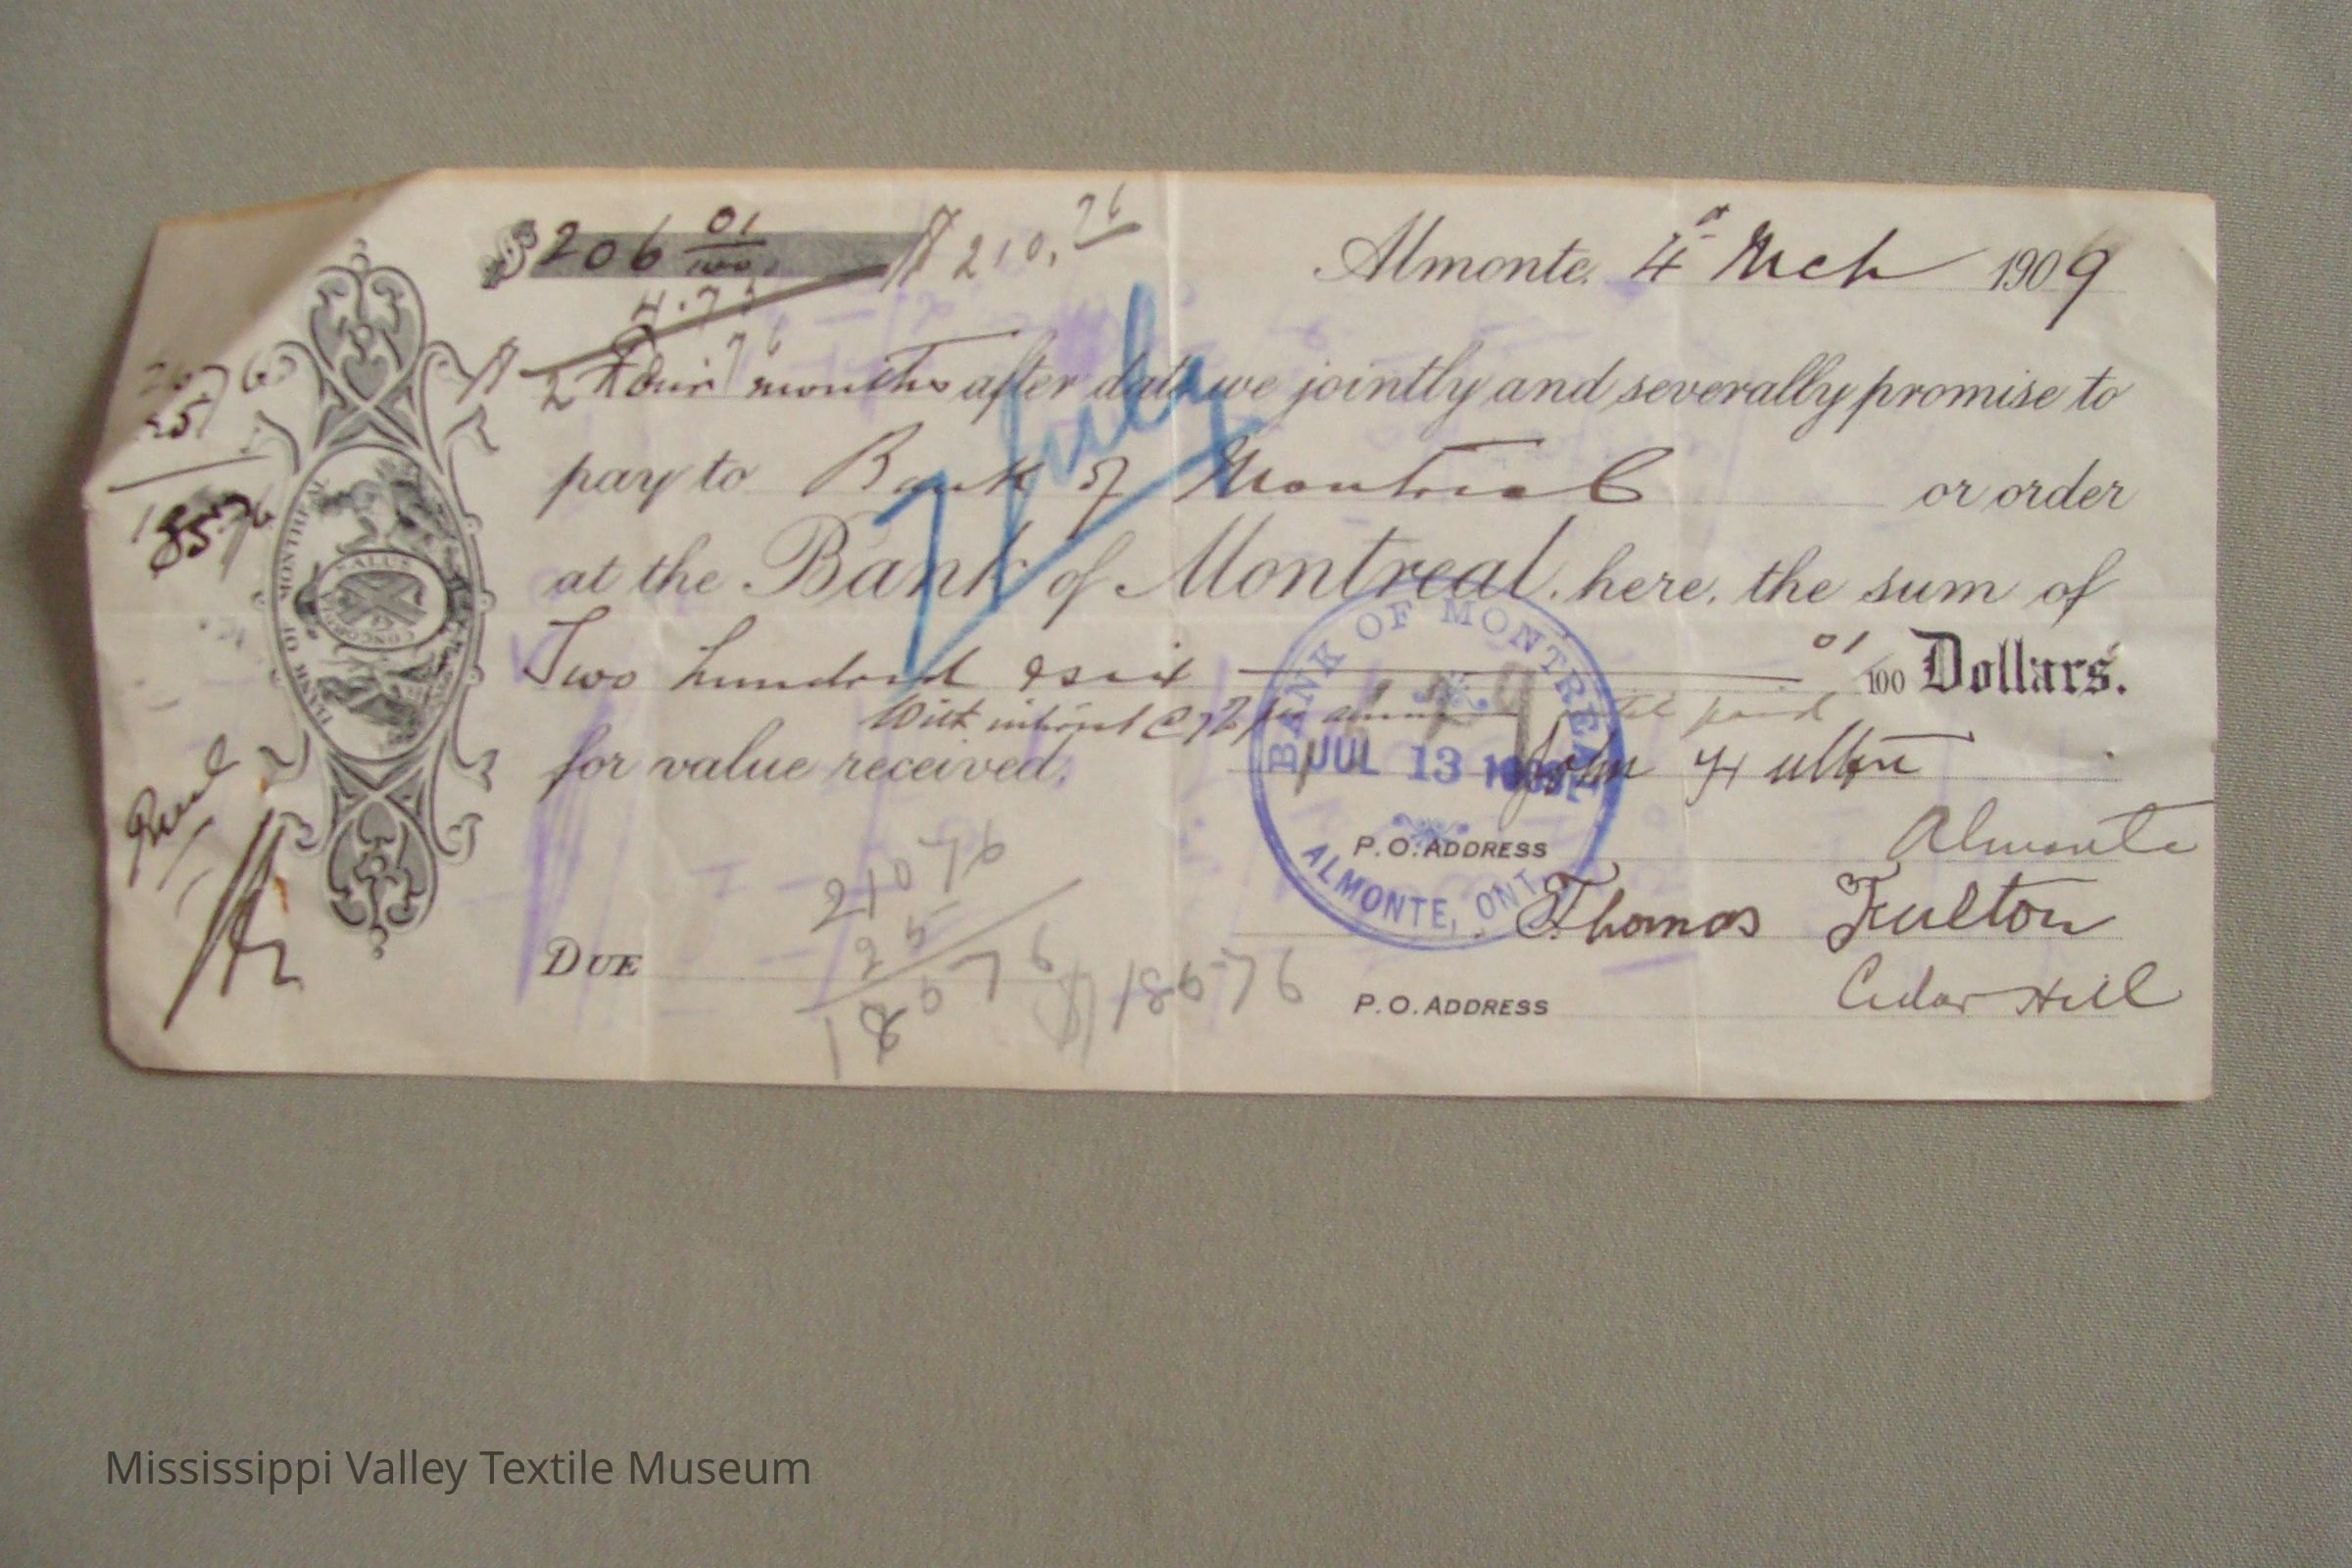 $206 01/100 $210.76
4.75
Almonte. 4th Mch 1909
Four months after date we jointly and severally promise to
pay to Bank of Montreal or order
7 July
at the Bank of Montreal, here, the sum of
Two hundred & six 01/100 Dollars.
With interest @ 7% per annum until paid
for value received.
John Fulton
P.O. ADDRESS Almonte
Thomas Fulton
P.O. ADDRESS Cedar Hill
DUE
210 76
25
185 76 $185 76
185.76
BANK OF MONTREAL
JUL 13
ALMONTE, ONT.
BANK OF MONTREAL
CONCORDIA
Mississippi Valley Textile Museum